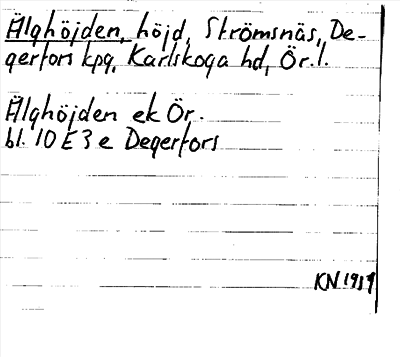 Älghöjden, höjd, Strömsnäs, De-
gerfors kpg, Karlskoga hd, Ör. l.
Älghöjden ek Ör.
bl. 10 E 3 e Degerfors
KN